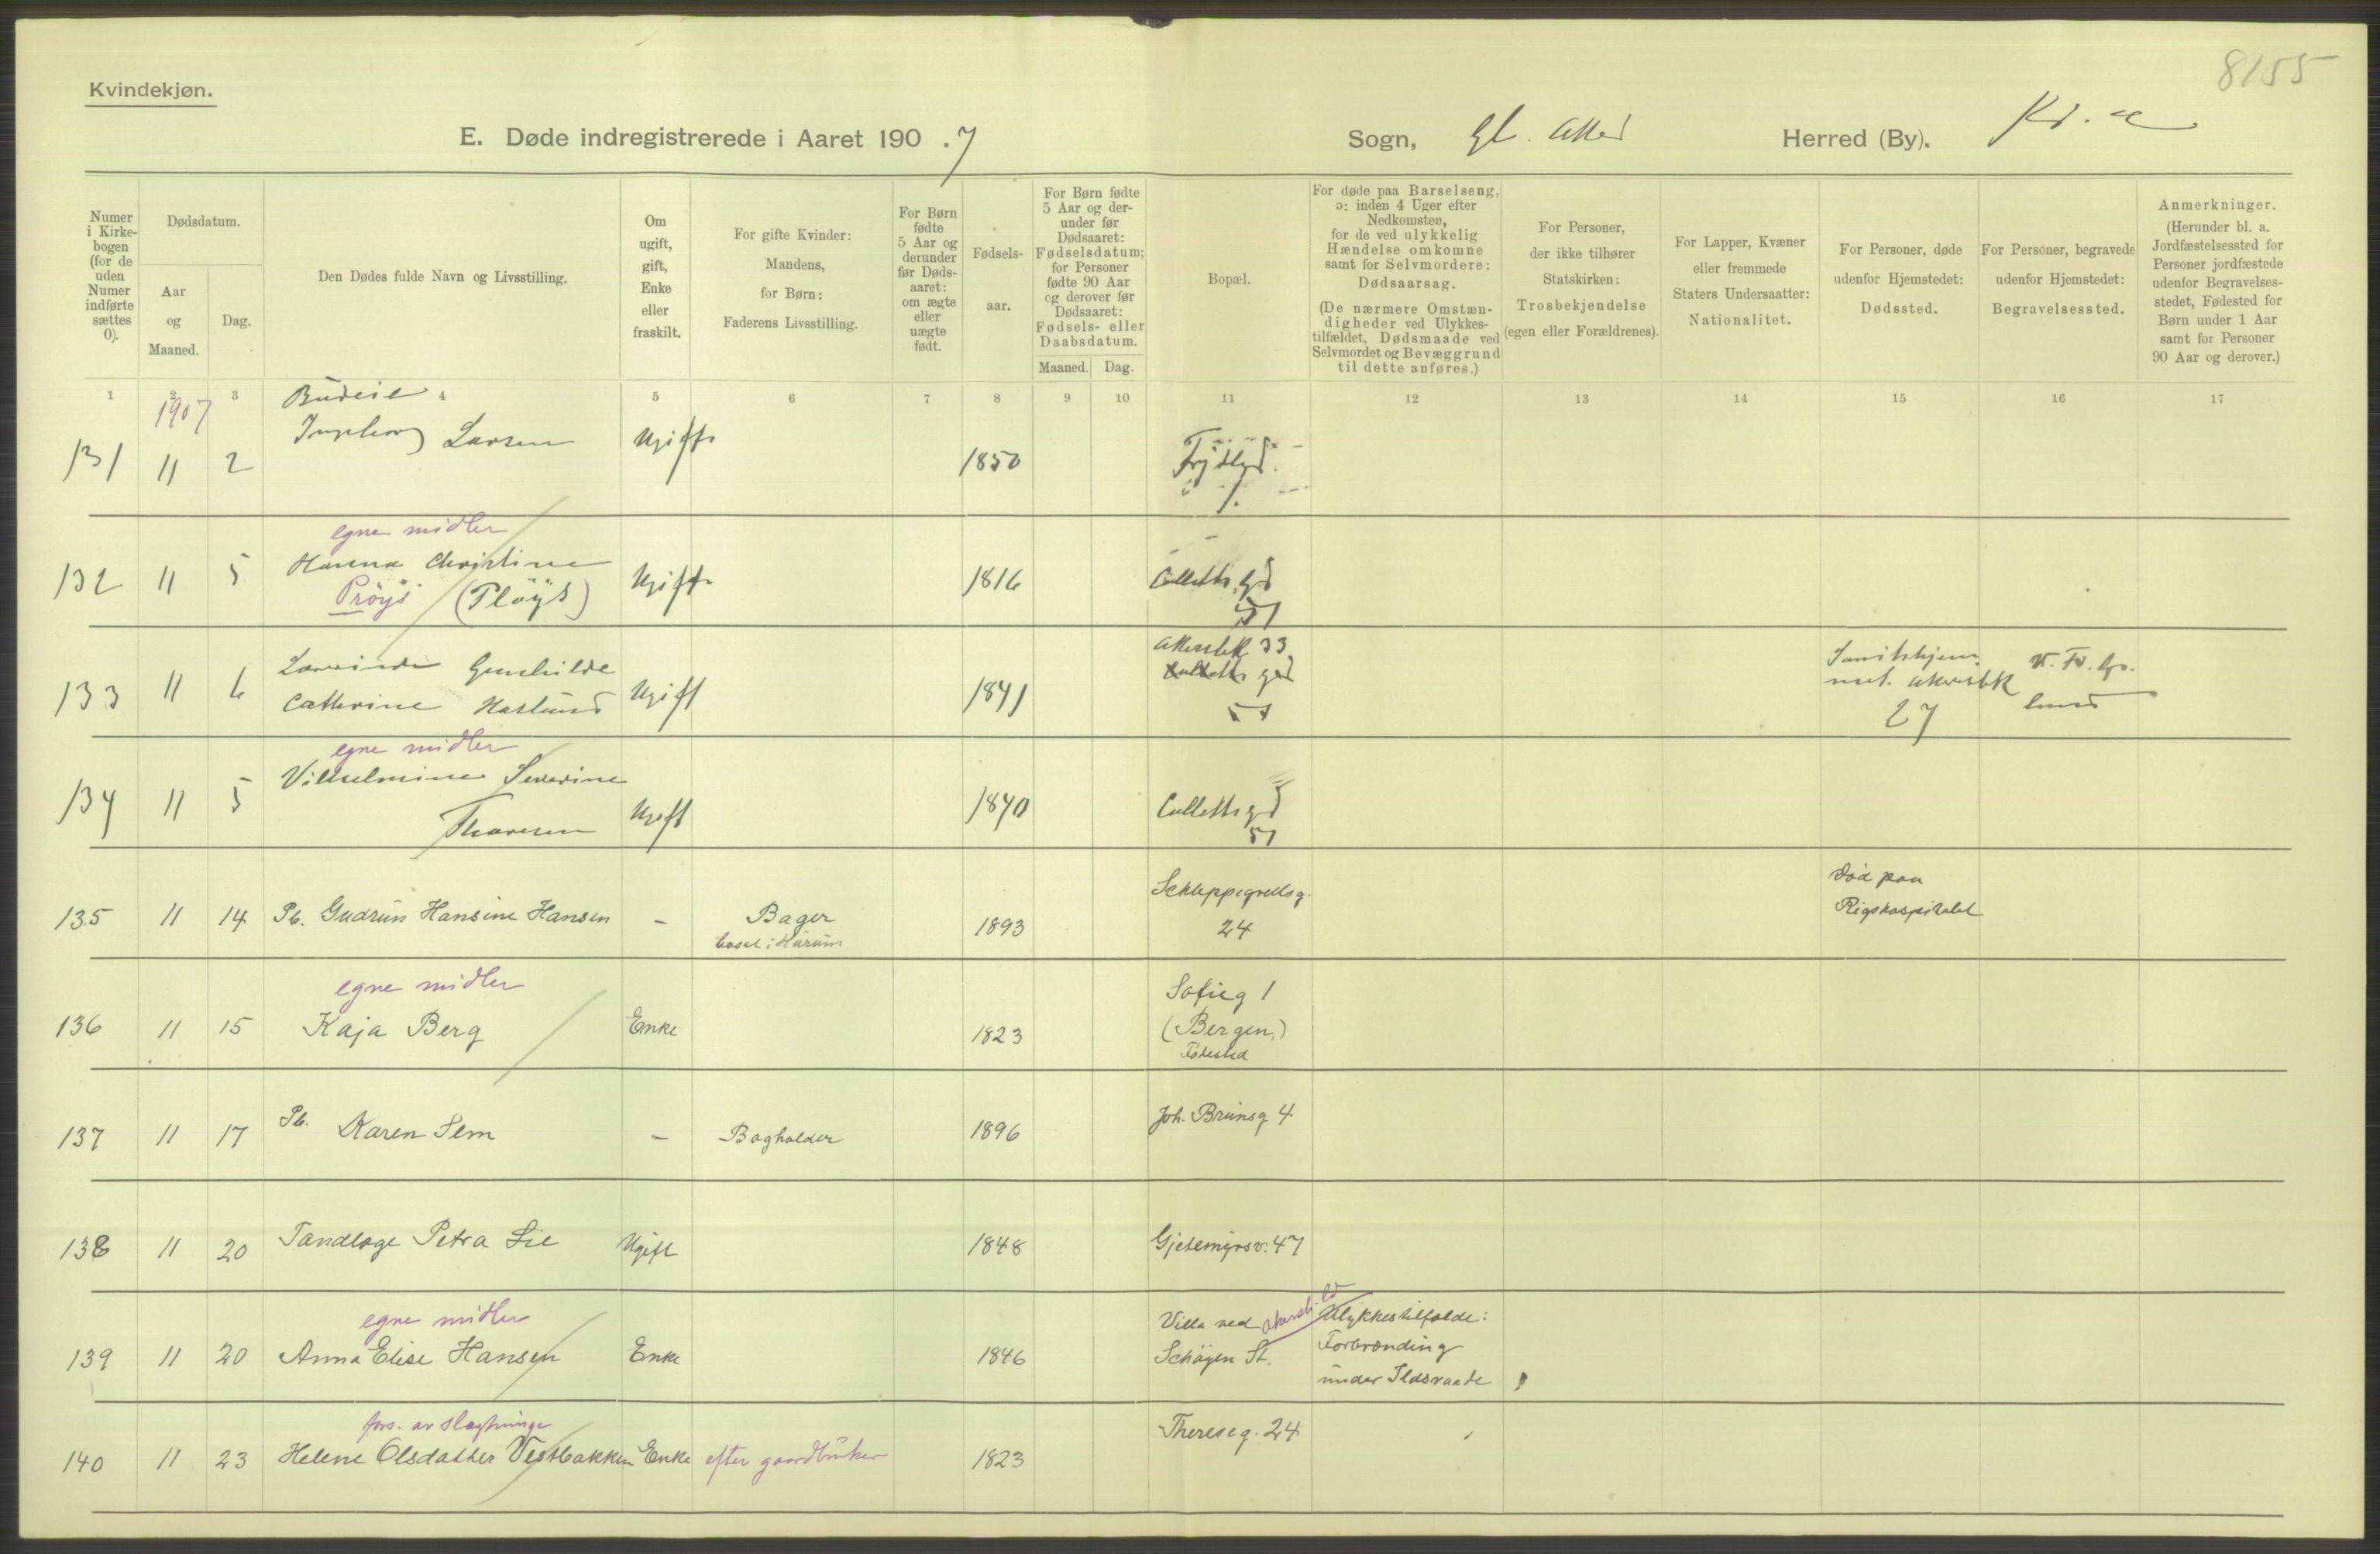 8155
Kvindekjøn.
E. Døde indregistrerede i Aaret 190.7 Sogn, Gl. Aker Herred (By). Kr.a
Numer i Kirke-bogen (for de uden Numer indførte sættes 0).
Dødsdatum.
Aar og Maaned.
Dag.
Den Dødes fulde Navn og Livsstilling.
Om ugift, gift, Enke eller fraskilt.
For gifte Kvinder: Mandens, for Børn: Faderens Livsstilling.
For Børn fødte 5 Aar og derunder før Døds-aaret: om ægte eller uægte født.
Fødsels-aar.
For Børn fødte 5 Aar og der-under før Dødsaaret: Fødselsdatum; for Personer fødte 90 Aar og derover før Dødsaaret: Fødsels- eller Daabsdatum.
Maaned. Dag.
Bopæl.
For døde paa Barselseng, ɔ: inden 4 Uger efter Nedkomsten, for de ved ulykkelig Hændelse omkomne samt for Selvmordere: Dødsaarsag.
(De nærmere Omstæn-digheder ved Ulykkes-tilfældet, Dødsmaade ved Selvmordet og Bevæggrund til dette anføres.)
For Personer, der ikke tilhører Statskirken: Trosbekjendelse (egen eller Forældrenes).
For Lapper, Kvæner eller fremmede Staters Undersaatter: Nationalitet.
For Personer, døde udenfor Hjemstedet: Dødssted.
For Personer, begravede udenfor Hjemstedet: Begravelsessted.
Anmerkninger.
(Herunder bl. a. Jordfæstelsessted for Personer jordfæstede udenfor Begravelses-stedet, Fødested for Børn under 1 Aar samt for Personer 90 Aar og derover.)
1 2 3 4 5 6 7 8 9 10 11 12 13 14 15 16 17
1907
Budeie
131 11 2 Ingeborg Larsen Ugift 1850
1.
egne midler
132 11 5 Hanna Christine Ugift 1816 Colletts gd
Prøys (Pløys) 51
133 11 6 Lovinde Gunhilde Ugift 1841 Akersbk 33
Cathrine Haslund Colletts gd 51
Akersbk 27
egne midler
134 11 5 Vilhelmine Severine Ugift 1840 Colletts gd
Thoresen 51
135 11 14 Pb. Gudrun Hansine Hansen – Bager 1893 Schleppegrellsg. 24 Død paa
bosat i Hurum Rigshospitalet
egne midler
136 11 15 Kaja Berg Enke 1823 Sofieg 1
(Bergen)
Fødested
137 11 17 Pb. Karen Sem – Bogholder 1896 Joh. Brunsg 4
138 11 20 Tandlæge Petra Lie Ugift 1848 Gjetemyrsv. 47
egne midler
139 11 20 Anna Elise Hansen Enke 1846 Villa ved Ulykkestilfælde:
Schøyen St. Forbrænding
under Ildsvaade
fors. av slægtninge
140 11 23 Helene Olsdatter Vestbakken Enke efter gaardbruker 1823 Thereseg. 24